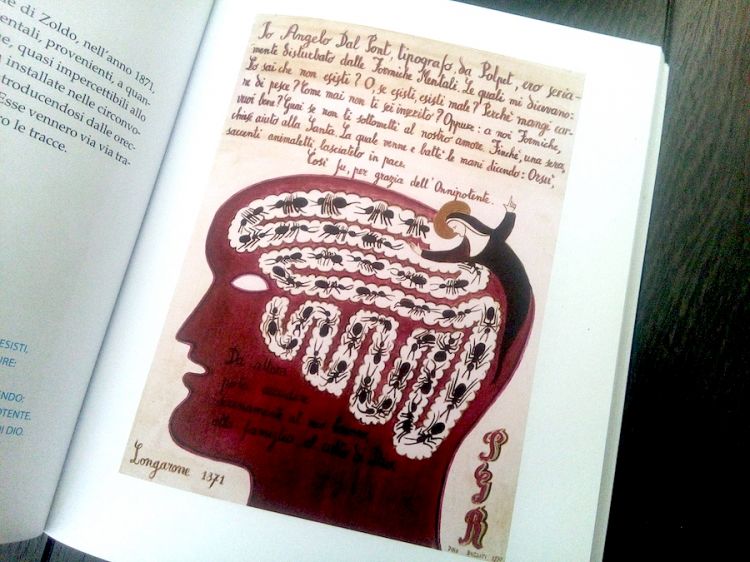 ne di Zoldo, nell'anno 1871,
entali, provenienti, a quan-
e, quasi impercettibili allo
installate nelle circonvo-
troducendosi dalle orec-
Esse vennero via via tra-
ro le tracce.
ESISTI,
URE:
NDO:
OTENTE.
DI DIO.
Io Angelo Dal Pont, tipografo, da Polpet, ero seria-
mente disturbato dalle Formiche Mentali. Le quali mi dicevano:
Lo sai che non esisti? O, se esisti, esisti male? Perché mangi car-
ne di pesce? Come mai non ti sei inserito? Oppure: a noi Formiche,
vuoi bene? Guai se non ti sottometti al nostro amore. Finché, una sera,
chiesi aiuto alla Santa. La quale venne e batté le mani dicendo: Orsù,
saccenti animaletti, lasciatelo in pace.
Così fu, per grazia dell'Onnipotente.
Da allora
potei
serenamente al mio lavoro
alla famiglia e al culto di Dio
Longarone 1871
PGR
Dino Buzzati